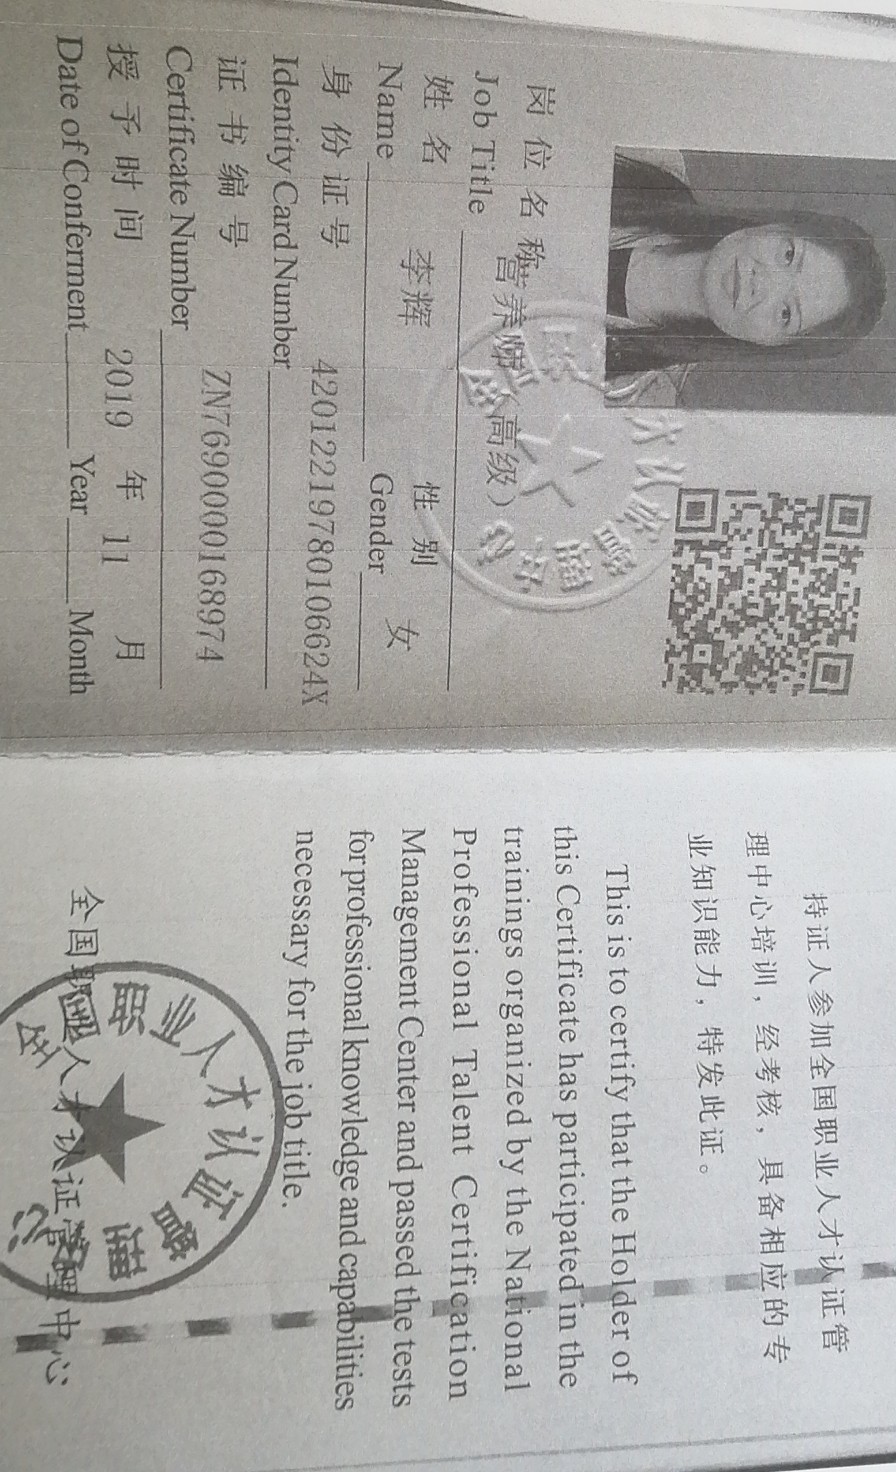 岗位名称 营养师（高级）
Job Title
姓名 李辉 性别 女
Name Gender
身份证号 42012219780106624X
Identity Card Number
证书编号 ZN7690000168974
Certificate Number
授予时间 2019 年 11 月
Date of Conferment Year Month
持证人参加全国职业人才认证管
理中心培训，经考核，具备相应的专
业知识能力，特发此证。
This is to certify that the Holder of
this Certificate has participated in the
trainings organized by the National
Professional Talent Certification
Management Center and passed the tests
for professional knowledge and capabilities
necessary for the job title.
全国职业人才认证管理中心
全国职业人才认证管理中心